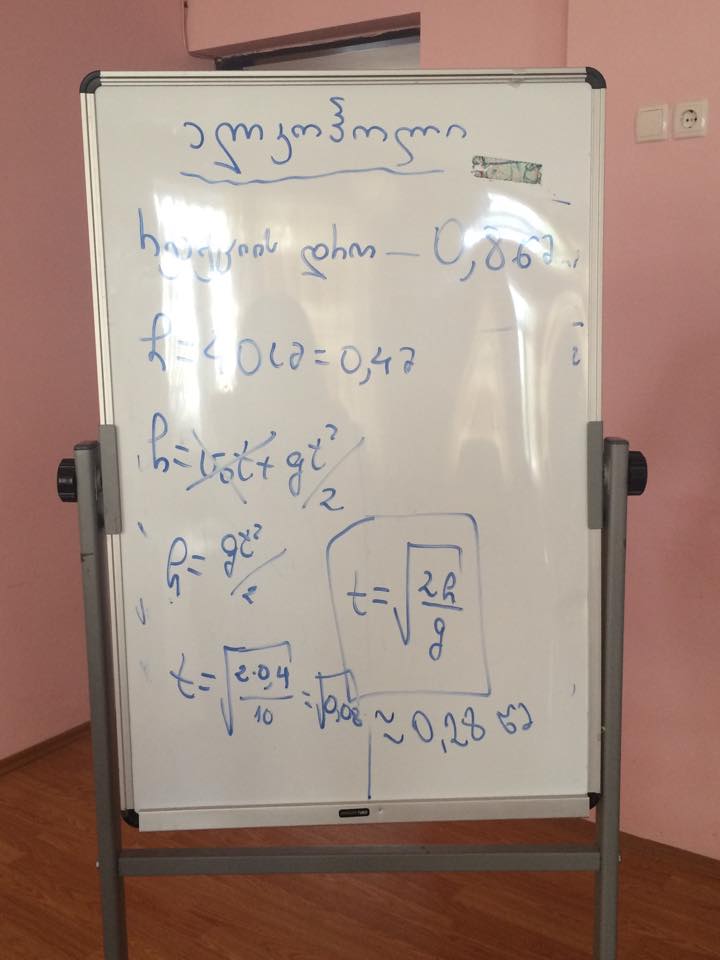 ალკოჰოლი
რეაქციის დრო — 0,8წმ
h=40სმ=0,4მ
h=v₀t+gt²/2
h=gt²/2
t=√2h/g
t=√2·0,4/10=√0,08≈0,28წმ